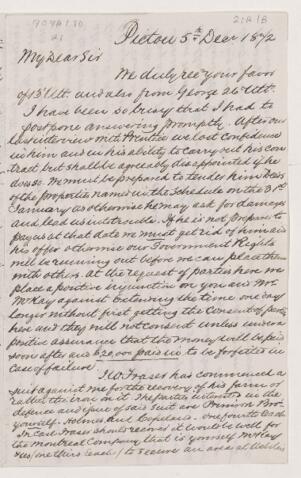 Pictou 5th Decr 1872
My Dear Sir
We duly recd your favor
of 13th Ult. and also from George 26th Ult.
I have been so busy that I had to
postpone answering promptly. After our
last interview with we lost confidence
in him and in his ability to carry out his con
tract but shall be agreeably disappointed if he
does so. We must be prepared to tender him Deeds
of the properties named in the Schedule on the 31st
January as otherwise he may ask for damages
and lead us into trouble. If he is not prepared to
pay us at that date we must get rid of him and
his offer otherwise our Government Rights
will be running out before we can place them
with others. At the request of parties here we
place a positive injunction on you and Mr
McKay against extending the time one day
longer without first getting the Consent of parties
here and they will not consent unless under a
positive assurance that the money will be paid
soon after and $20,000 paid in to be forfeited in
case of failure.
J W Fraser has commenced a
suit against me for the recovery of his farm or
rather the iron on it. The parties interested in the
defence and fuse of said suit are Primrose Bros
yourself, Holmes and Copeland. One fourth Each
In case Fraser should succeed it would be well for
the Montreal Company, that is yourself McKay
& us / one third each / to secure an area at